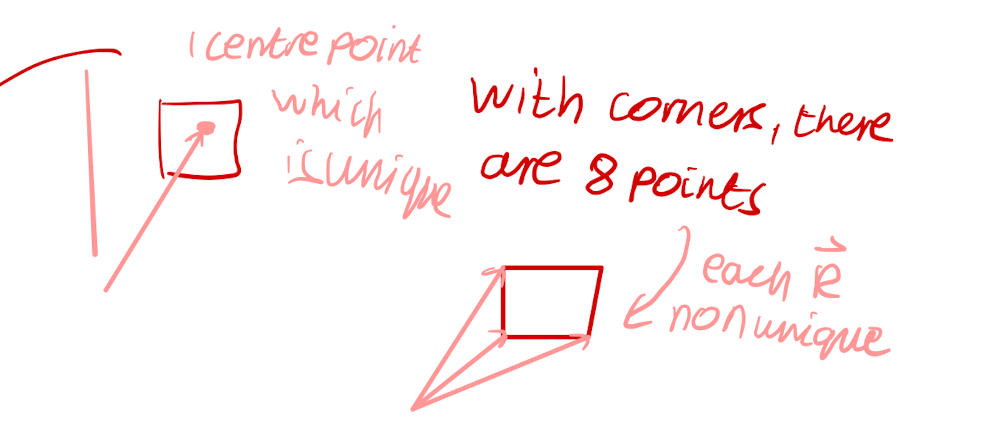 1 centre point
which
is unique
with corners, there
are 8 points
each R⃗
non unique